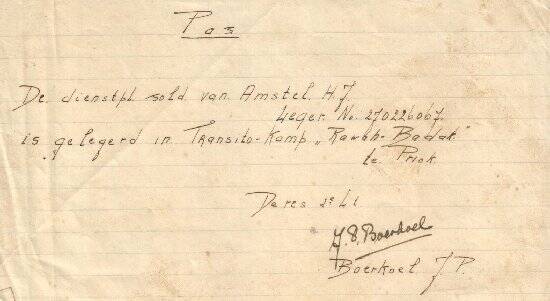 Pas
De dienstpl sold van Amstel H.J.
Leger No. 270226067.
is gelegerd in Transito-Kamp „Rawah-Badak"
te Priok
De res 2e Lt
J.P. Boerkoel
Boerkoel J.P.